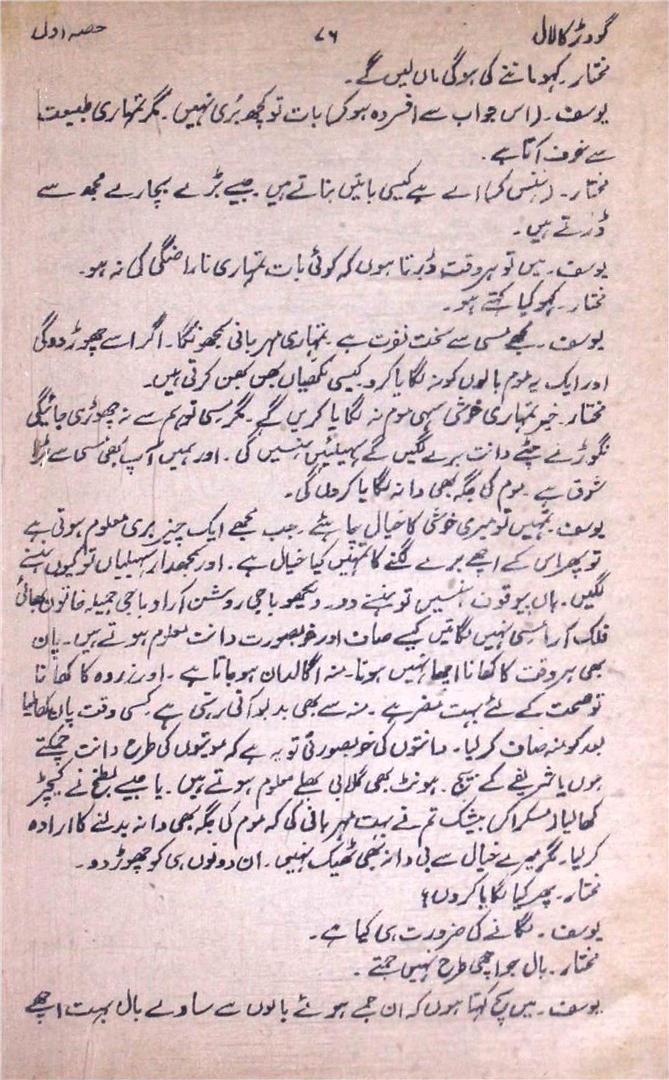 گودڑ کا لال ۷۶ حصہ اول
مختار۔ کہو ماننے کی ہوگی مان لیں گے۔
یوسف۔ (اس جواب سے افسردہ ہوکر) بات تو کچھ بُری نہیں۔ مگر تمہاری طبیعت
سے خوف آتا ہے۔
مختار۔ (ہنس کر) اے ہے کیسی باتیں بناتے ہیں جیسے بڑے بچارے مجھ سے
ڈرتے ہیں۔
یوسف۔ میں تو ہر وقت ڈرتا ہوں کہ کوئی بات تمہاری ناراضگی کی نہ ہو۔
مختار۔ کہو کیا کہتے ہو۔
یوسف۔ مجھے مسی سے سخت نفرت ہے۔ تمہاری مہربانی سمجھونگا۔ اگر اسے چھوڑ دو گی
اور ایک یہ موم بالوں کو نہ لگایا کرو۔ کیسی مکھیاں بھن بھن کرتی ہیں۔
مختار۔ خیر تمہاری خوشی سہی موم نہ لگایا کریں گے۔ مگر مسی تو ہم سے نہ چھوڑی جائیگی
نگوڑے چٹے دانت برے لگیں گے سہیلیئں ہنسیں گی۔ اور ہمیں آپ بھی مسی سے بڑا
شوق ہے۔ موم کی جگہ بھی دانہ لگا یا کروں گی۔
یوسف۔ تمہیں تو میری خوشی کا خیال چاہیئے۔ جب مجھے ایک چیز بری معلوم ہوتی ہے
تو پھر اس کے اچھے برے لگنے کا تمہیں کیا خیال ہے۔ اور سمجھدار سہیلیاں تو کیوں ہنسنے
لگیں۔ ہاں بیوقوف ہنسیں تو ہنسنے دو۔ دیکھو باجی روشن آرا و باجی جمیلہ خاتون بھائی
فلک آرا مسی نہیں لگاتیں کیسے صاف اور خوبصورت دانت معلوم ہوتے ہیں۔ پان
بھی ہر وقت کا کھانا اچھا نہیں ہوتا۔ منہ اگالدان ہو جاتا ہے۔ اور زردہ کا کھانا
تو صحت کے لئے بہت مضر ہے۔ منہ سے بھی بدبو آتی رہتی ہے۔ کسی وقت پان کھا لیا
بعد کو منہ صاف کر لیا۔ دانتوں کی خوبصورتی تو یہ ہے کہ موتیوں کی طرح دانت چمکتے
ہوں یا شریفے کے بیج۔ ہونٹ بھی گلابی بھلے معلوم ہوتے ہیں۔ یا جیسے بطخ نے کیچڑ
کھا لیا (مسکرا کر) بیشک تم نے بہت مہربانی کی کہ موم کی جگہ بھی دانہ بدلنے کا ارادہ
کر لیا۔ مگر میرے خیال سے بی دانہ بھی ٹھیک نہیں۔ ان دونوں ہی کو چھوڑ دو۔
مختار۔ پھر کیا لگایا کروں؟
یوسف۔ لگانے کی ضرورت ہی کیا ہے۔
مختار۔ بال جو اچھی طرح نہیں جمتے۔
یوسف۔ میں سچ کہتا ہوں کہ ان جمے ہوئے بالوں سے سادے بال بہت اچھے